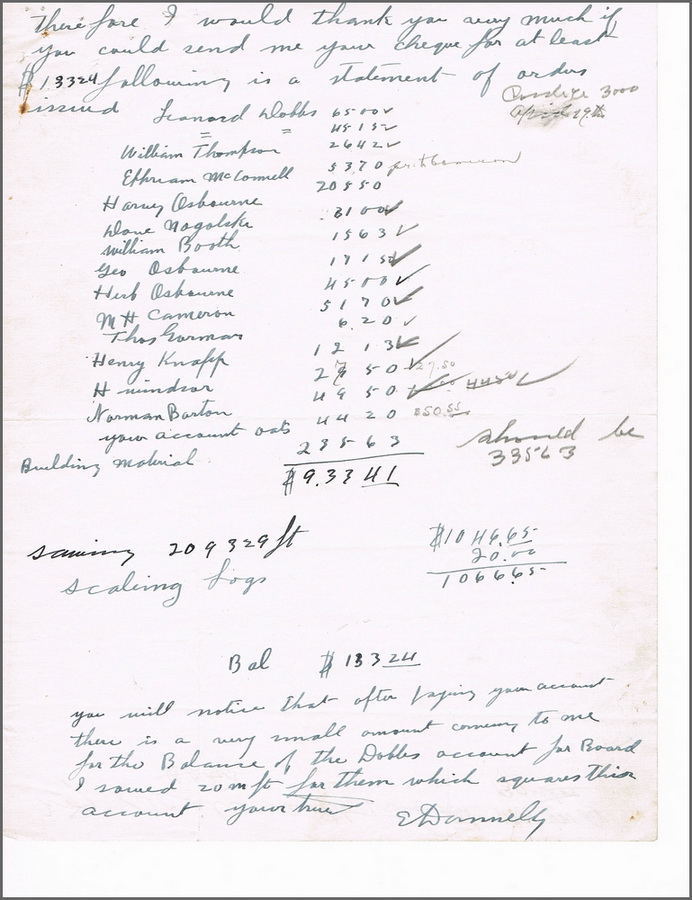 therefore I would thank you very much if
you could send me your cheque for at least
$13324 following is a statement of orders
issued Leonard Dobbs 6500 ✓
3000
" = 4515 ✓
April 19th
William Thompson 2642 ✓
Ephriam McConnell 5370
20550
Harvey Osbourne 3100 ✓
Dave Nagolski 1563 ✓
William Booth 1715 ✓
Geo Osbourne 4500 ✓
Herb Osbourne 5170 ✓
M H Cameron 6.20 ✓
Thos Gorman 1213 ✓
Henry Knapp 2750 ✓ 27.50
H windsor 4950 ✓
Norman Barton 4420 850.55
your account oats 28563
should be
33563
Building material $9.3341
sawing 209329 ft $1046.65
20.00
scaling logs 1066.65
Bal $13324
you will notice that after paying your account
there is a very small amount coming to me
for the Balance of the Dobbs account for Board
I sawed 20 m ft for them which squares this
account yours true
E Donnelly